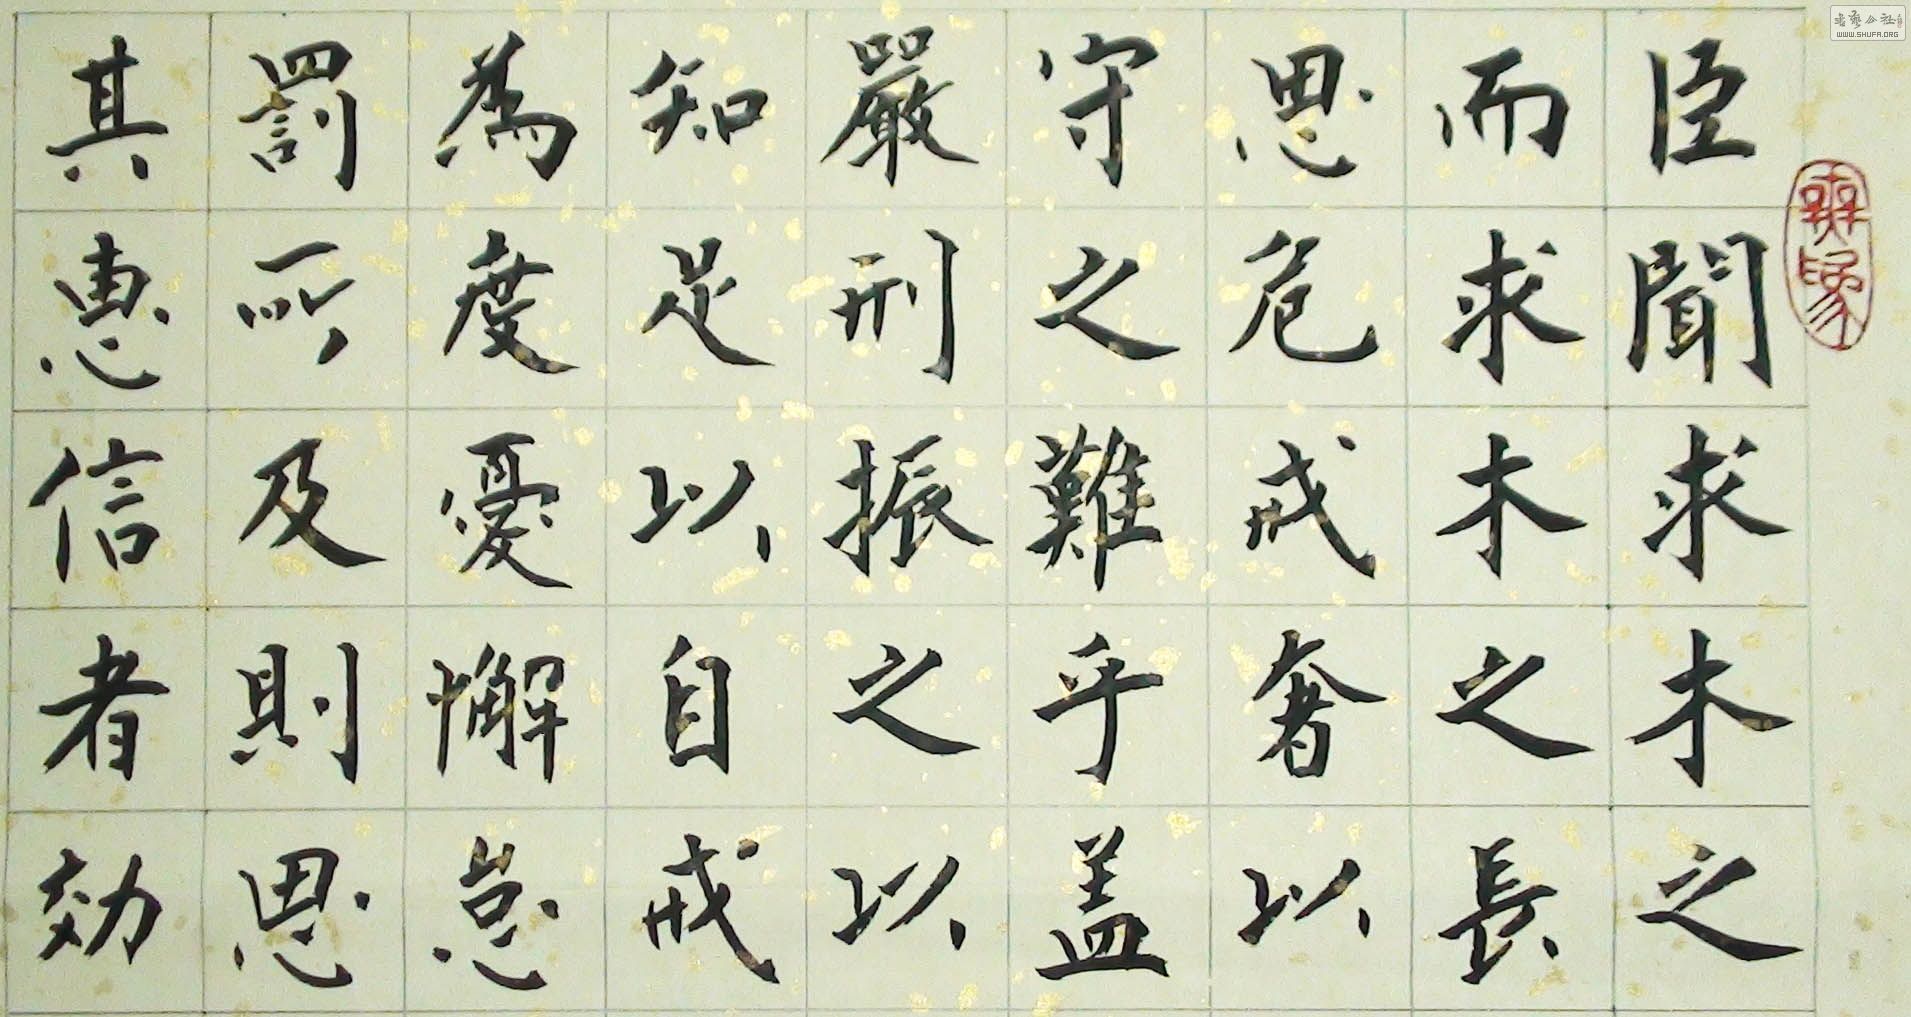 臣聞求木之
而求木之長
思危戒奢以
守之難乎盖
嚴刑振之以
知足以自戒
為度憂懈怠
罰所及則思
其惠信者効
书艺公社
WWW.SHUFA.ORG